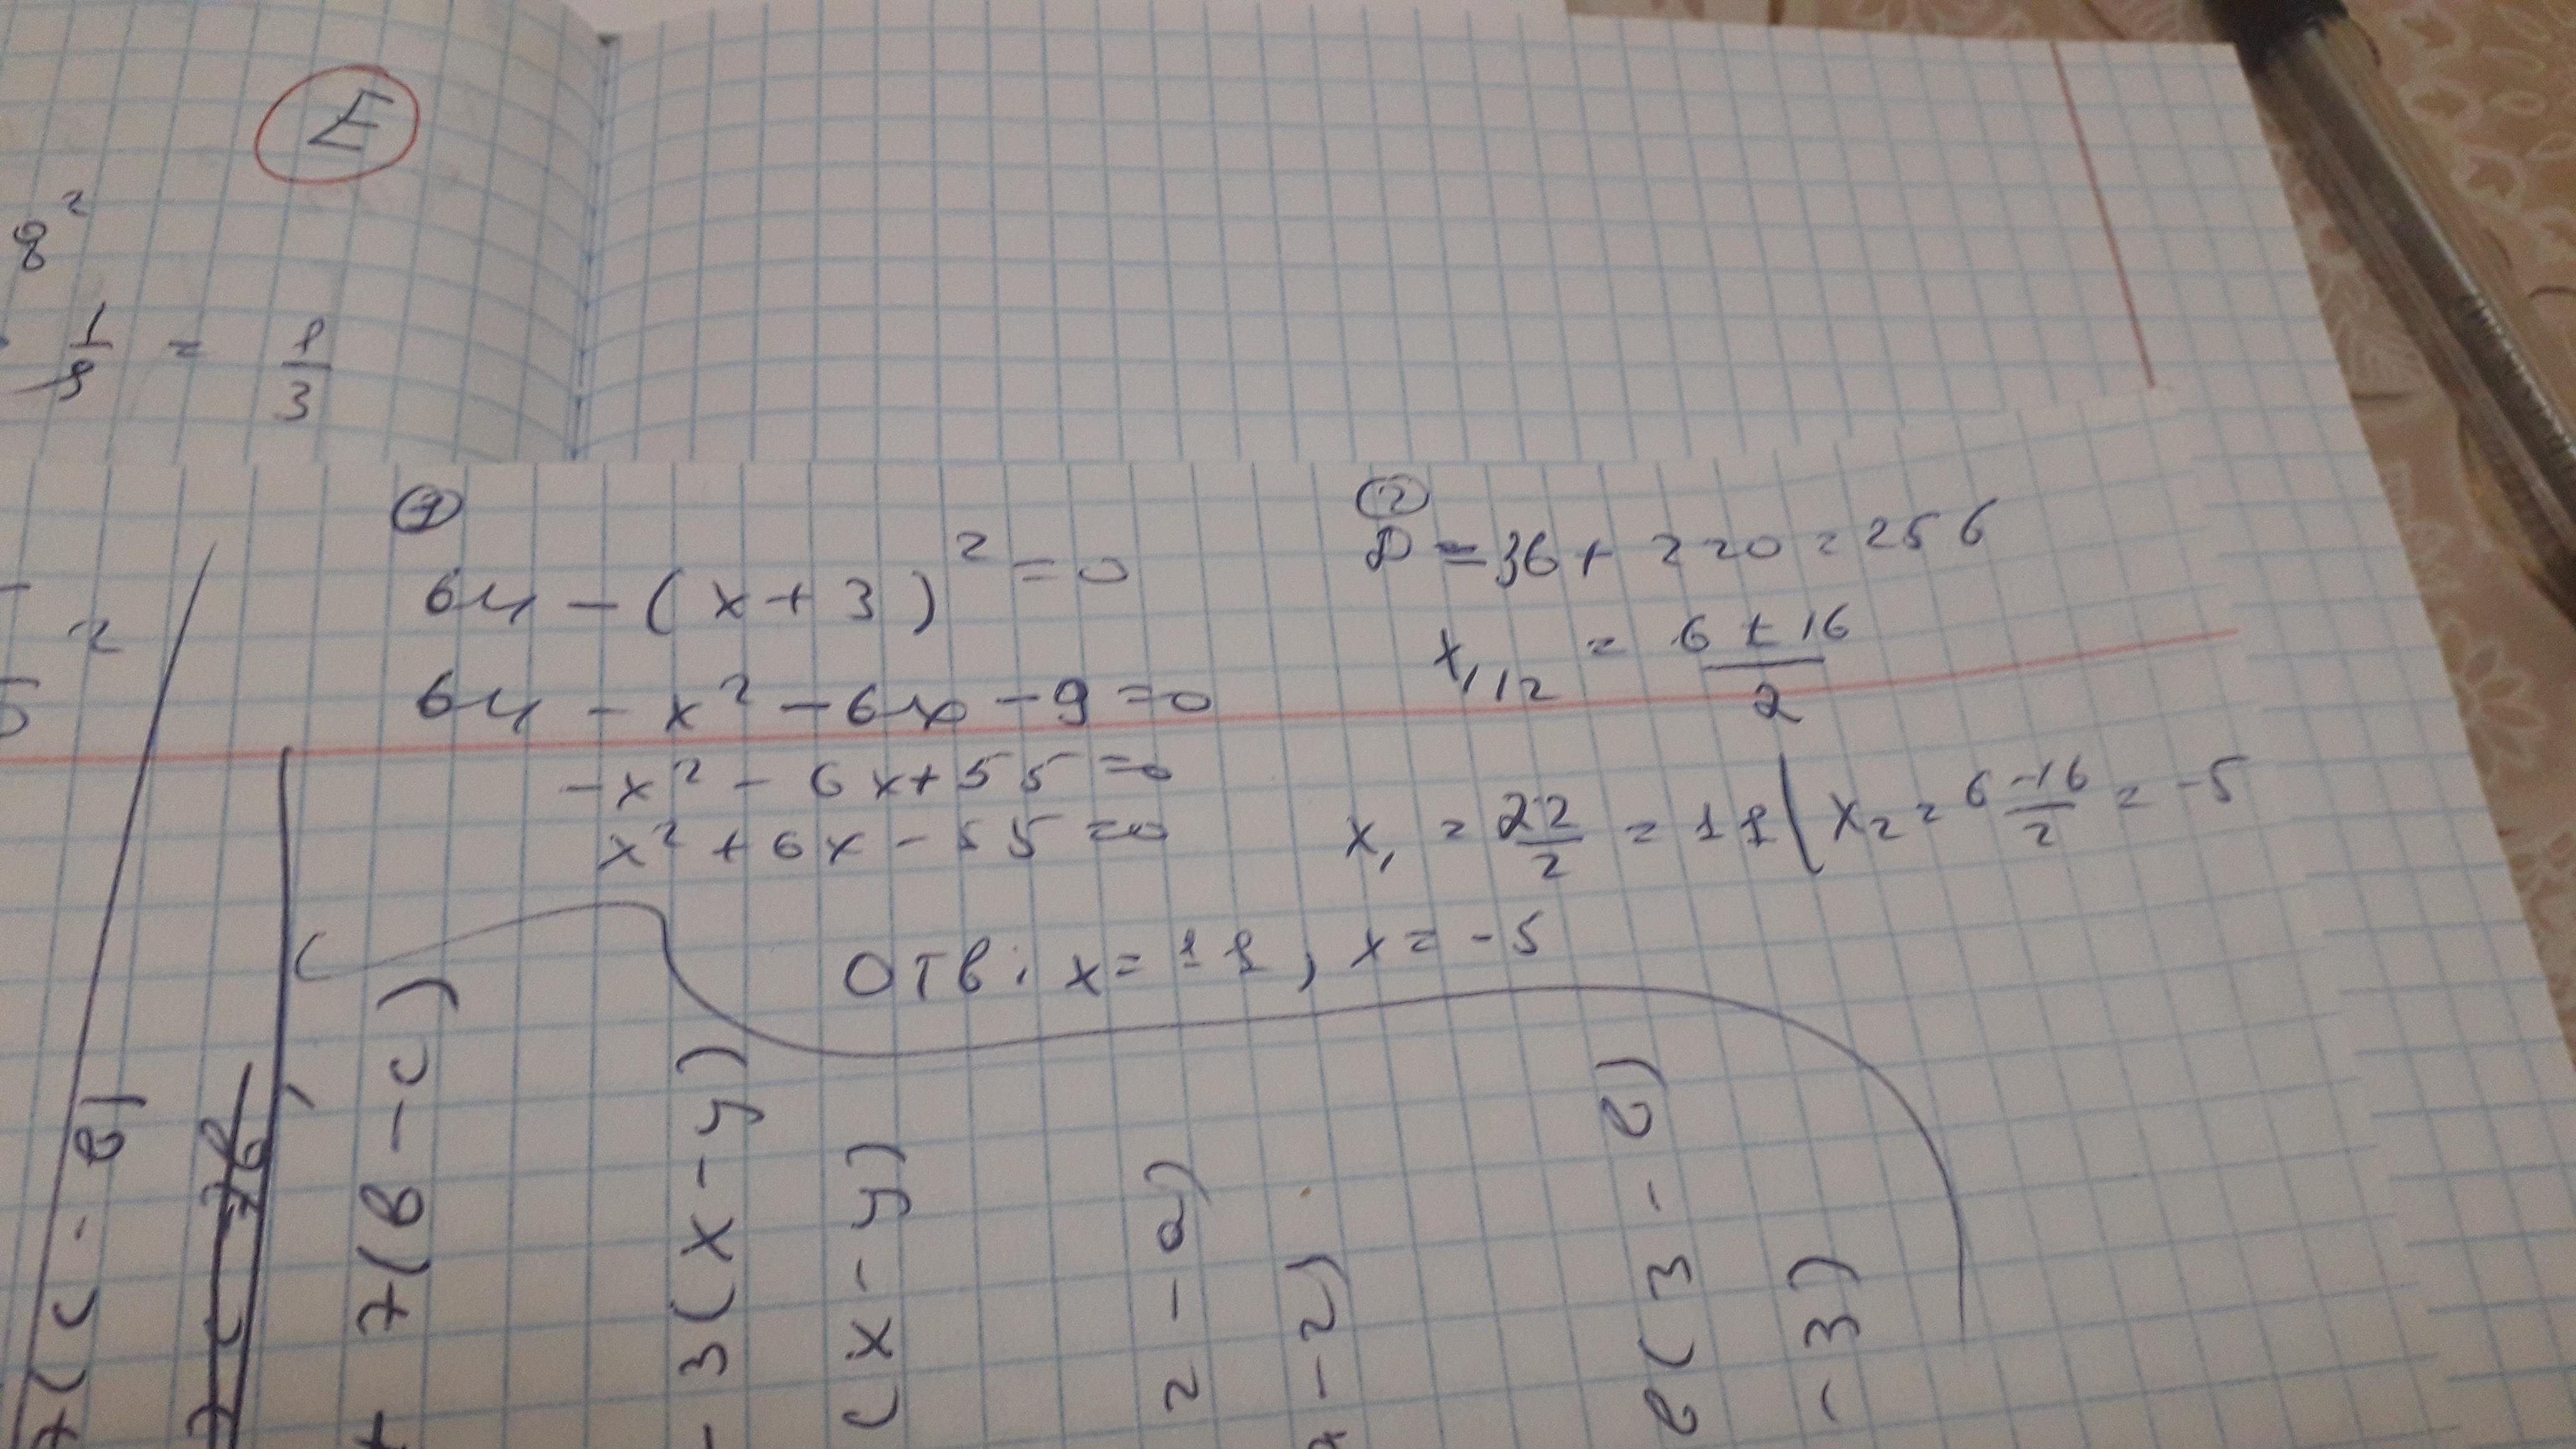 E
8²
1/9 = 1/3
2
①
64 - (x + 3)² = 0
64 - x² - 6x - 9 = 0
-x² - 6x + 55 = 0
x² + 6x - 55 = 0
②
D = 36 + 220 = 256
x₁,₂ = (6 ± 16)/2
x₁ = 22/2 = 11 | x₂ = (6 - 16)/2 = -5
Отв: x = 11, x = -5
7(c - в)
7(в - c)
- 3(x - y)
(x - y)
2 - a)
- 2)
в(3 - в)
- 3)